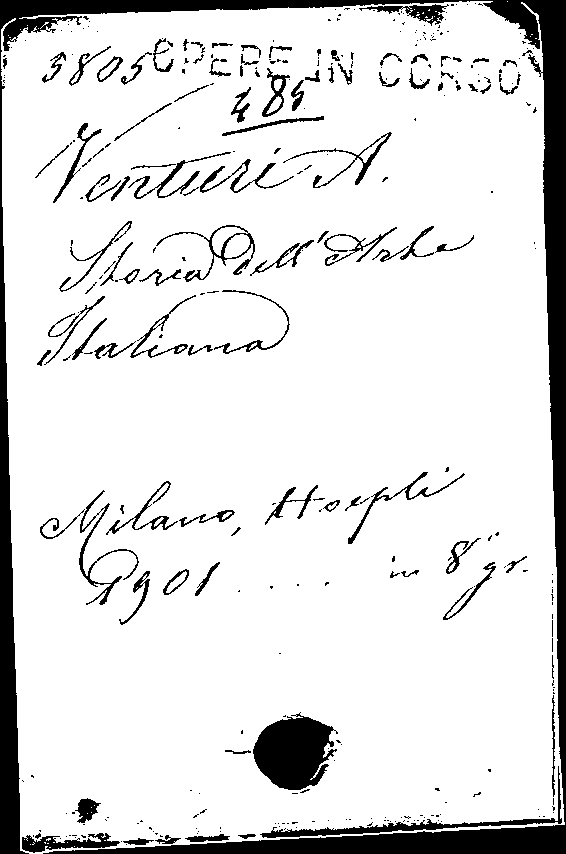 5805 OPERE IN CORSO
485
Venturi A.
Storia dell'Arte
Italiana
Milano, Hoepli
1901 .... in 8° gr.